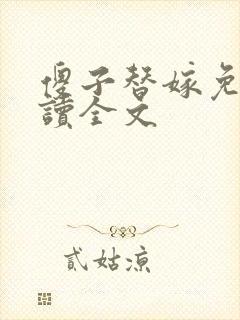 傻子替嫁免
讀全文
貳姑涼